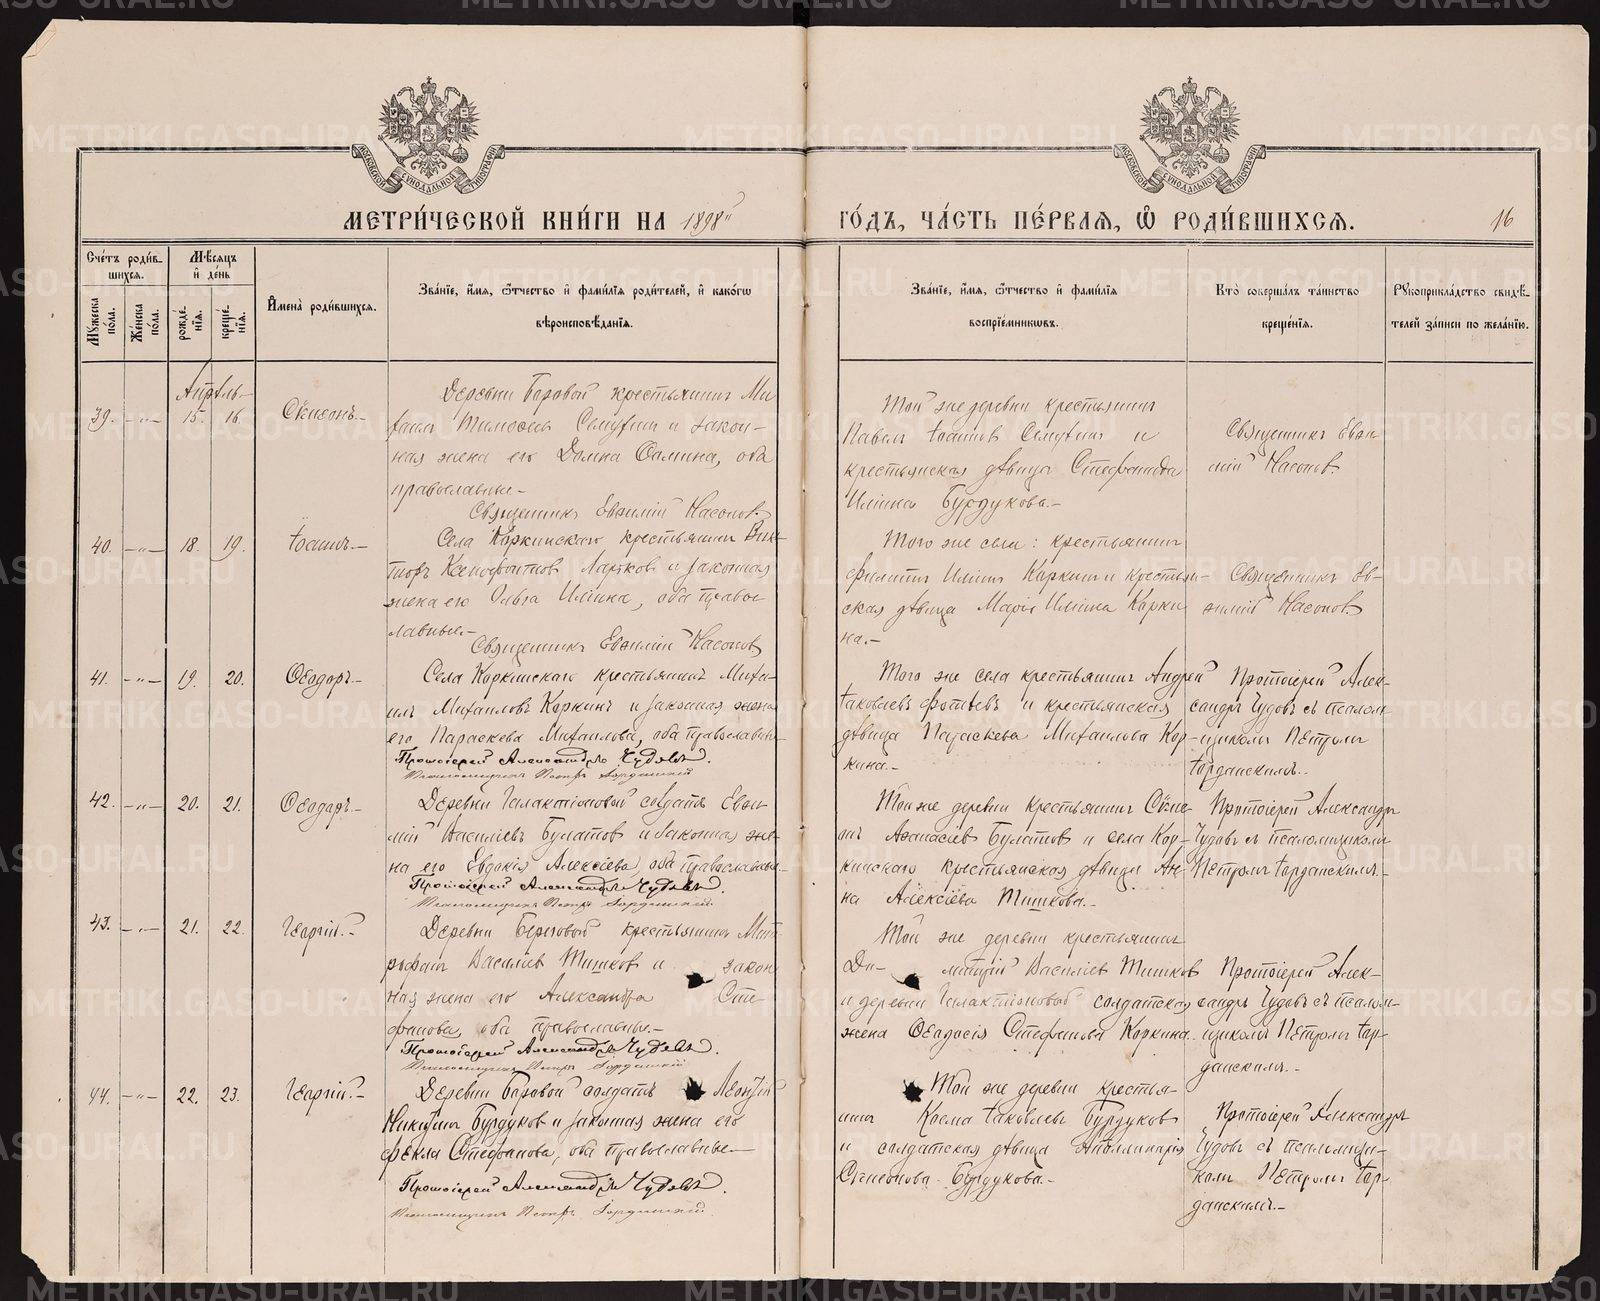 МЕТРИ́ЧЕСКОЙ КНИ́ГИ НА 1898й
ГО́ДЪ, ЧА́СТЬ ПЕ́РВАѦ, Ѽ РОДИ́ВШИХСѦ.
16
Сче́тъ роди́в-
шихсѧ.
Мꙋжеска по́ла.
Же́нска по́ла.
Мѣ́сѧцъ и҆ де́нь
рожде́-
нїѧ.
креще́-
нїѧ.
И҆мена̀ роди́вшихсѧ.
Зва́нїе, и҆́мѧ, ѻ҆́тчество и҆ фами́лїѧ роди́телей, и҆ како́гѡ
вѣроисповѣ́данїѧ.
Зва́нїе, и҆́мѧ, ѻ҆́тчество и҆ фами́лїѧ
воспрїе́мникѡвъ.
Кто̀ соверша́лъ та́инство
креще́нїѧ.
Рꙋкоприкла́дство свидѣ́-
телей за́писи по жела́нїю.
МОСКОВСКОЙ СѴНОДАЛЬНОЙ ТИПОГРАФІИ
МОСКОВСКОЙ СѴНОДАЛЬНОЙ ТИПОГРАФІИ
Апрѣль
39. -"- 15. 16. Сѵмеонъ.-
Деревни Боровой крестьянинъ Ми
хаилъ Тимоѳеевъ Семухинъ и закон-
ная жена его Домна Ѳомина, оба
православные.-
Священникъ Евѳимій Насоновъ.
Той же деревни крестьянинъ
Павелъ Іоанновъ Семухинъ и
крестьянская дѣвица Стефанида
Ильина Бурдукова.-
Священникъ Евѳи-
мій Насоновъ.
40. -"- 18. 19. Іоаннъ.-
Села Коркинскаго крестьянинъ Вик-
торъ Ксенофонтовъ Ларьковъ и законная
жена его Ольга Ильина, оба право-
славные.-
Священникъ Евѳимій Насоновъ
Того же села: крестьянинъ
Филиппъ Ильинъ Коркинъ и крестьян-
ская дѣвица Марія Ильина Корки
на.-
Священникъ Ев-
ѳимій Насоновъ
41. -"- 19. 20. Ѳеодоръ.-
Села Коркинскаго крестьянинъ Миха-
илъ Михаиловъ Коркинъ и законная жена
его Параскева Михаилова, оба православные
Протоіерей Александръ Чудовъ.
Псаломщикъ Петръ Іорданскій
Того же села крестьянинъ Андрей
Іаковлевъ Фотѣевъ и крестьянская
дѣвица Параскева Михаилова Кор-
кина.-
Протоіерей Алек-
сандръ Чудовъ съ псалом-
щикомъ Петромъ
Іорданскимъ.-
42. -"- 20. 21. Ѳеодоръ.-
Деревни Галактіоновой солдатъ Евѳи-
мій Василіевъ Булатовъ и законная же-
на его Евдокія Алексіева, оба православные.-
Протоіерей Александръ Чудовъ.
Псаломщикъ Петръ Іорданскій
Той же деревни крестьянинъ Сѵме-
онъ Аѳанасіевъ Булатовъ и села Кор-
кинскаго крестьянская дѣвица Ан-
на Алексіева Тишкова.-
Протоіерей Александръ
Чудовъ съ псаломщикомъ
Петромъ Іорданскимъ.-
43. -"- 21. 22. Георгій.-
Деревни Береговой крестьянинъ Мит
рофанъ Василіевъ Тишковъ и закон
ная жена его Александра Сте
фанова, оба православные.-
Протоіерей Александръ Чудовъ.
Псаломщикъ Петръ Іорданскій
Той же деревни крестьянинъ
Ди- митрій Василіевъ Тишковъ
и деревни Галактіоновой солдатская
жена Ѳеодосія Стефанова Коркина.
Протоіерей Алек-
сандръ Чудовъ съ псалом-
щикомъ Петромъ Іор-
данскимъ.-
44. -"- 22. 23. Георгій.-
Деревни Боровой солдатъ Леонтій
Никитинъ Бурдуковъ и законная жена его
Ѳекла Стефанова, оба православные.-
Протоіерей Александръ Чудовъ.
Псаломщикъ Петръ Іорданскій
Той же деревни крестья-
нинъ Косма Іаковлевъ Бурдуковъ
и солдатская дѣвица Аполлинарія
Сѵмеонова Бурдукова.-
Протоіерей Александръ
Чудовъ съ псаломщи-
комъ Петромъ Іор-
данскимъ.-
METRIKI.GASO-URAL.RU